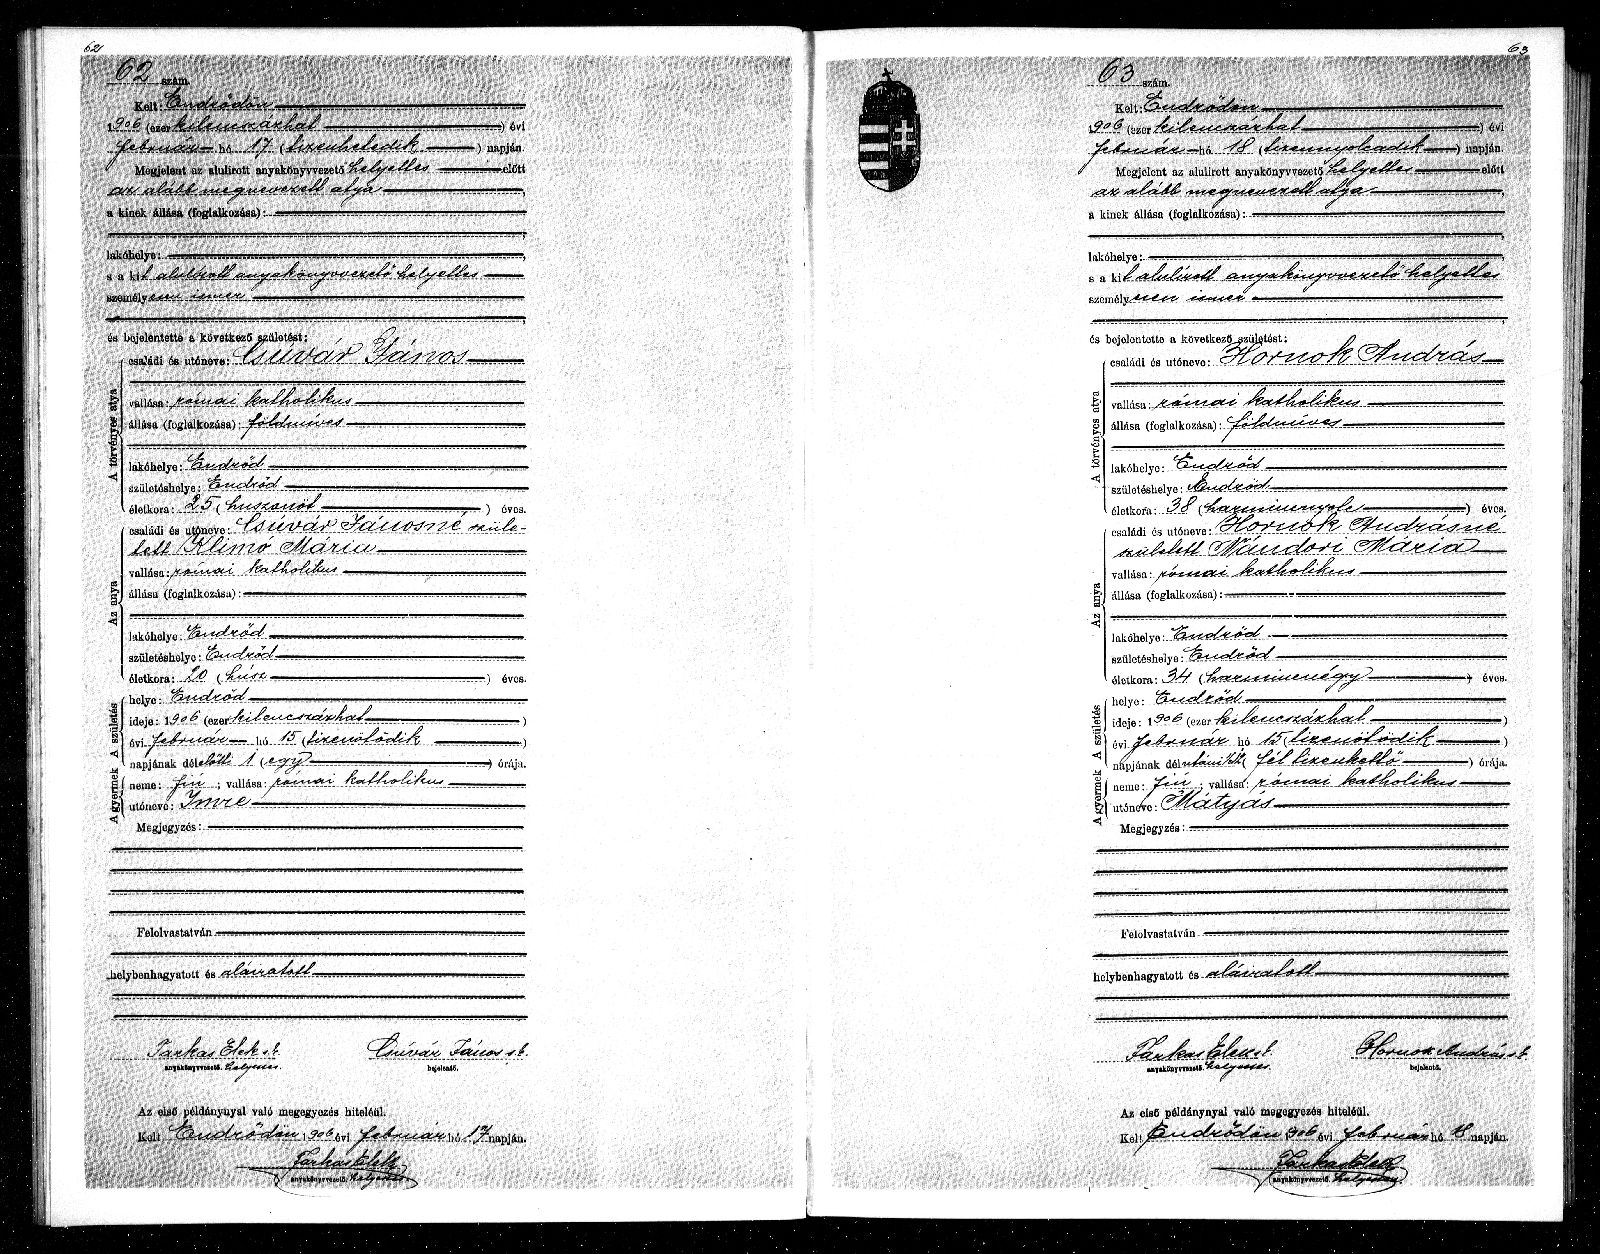 62
62 szám.
Kelt: Endrődön
1906 (ezer kilenczszázhat ) évi
február hó 17 (tizenhetedik ) napján.
Megjelent az alulirott anyakönyvvezető helyettes előtt
az alább megnevezett atya
a kinek állása (foglalkozása):
lakóhelye:
s a kit alulirott anyakönyvvezető helyettes
személyesen ismer
és bejelentette a következő születést:
A törvényes atya
családi és utóneve: Csúvár János
vallása: római katholikus
állása (foglalkozása): földmíves
lakóhelye: Endrőd
születéshelye: Endrőd
életkora: 25 (huszonöt ) éves.
Az anya
családi és utóneve: Csúvár Jánosné szüle-
tett Klimó Mária
vallása: római katholikus
állása (foglalkozása):
lakóhelye: Endrőd
születéshelye: Endrőd
életkora: 20 (húsz ) éves.
A születés
helye: Endrőd
ideje: 1906 (ezer kilenczszázhat )
évi február hó 15 (tizenötödik )
napjának délelőtti 1 (egy ) órája.
A gyermek
neme: fiú; vallása: római katholikus
utóneve: Imre
Megjegyzés:
Felolvastatván
helybenhagyatott és aláiratott
Farkas Elek s.k. Csúvár János s.k.
anyakönyvvezető. helyettes. bejelentő.
Az első példánynyal való megegyezés hiteléül.
Kelt Endrődön 1906 évi február hó 17 napján.
Farkas Elek
anyakönyvvezető. helyettes
63
63 szám.
Kelt: Endrődön
1906 (ezer kilenczszázhat ) évi
február hó 18 (tizennyolcadik ) napján.
Megjelent az alulirott anyakönyvvezető helyettes előtt
az alább megnevezett atya
a kinek állása (foglalkozása):
lakóhelye:
s a kit alulírott anyakönyvvezető helyettes
személyesen ismer
és bejelentette a következő születést:
A törvényes atya
családi és utóneve: Hornok András
vallása: római katholikus
állása (foglalkozása): földmíves
lakóhelye: Endrőd
születéshelye: Endrőd
életkora: 38 (harmincnyolc ) éves.
Az anya
családi és utóneve: Hornok Andrásné
született Nándori Mária
vallása: római katholikus
állása (foglalkozása):
lakóhelye: Endrőd
születéshelye: Endrőd
életkora: 34 (harmincnégy ) éves.
A születés
helye: Endrőd
ideje: 1906 (ezer kilenczszázhat )
évi február hó 15 (tizenötödik )
napjának délutáni fél tizenkettő ) órája.
A gyermek
neme: fiú; vallása: római katholikus
utóneve: Mátyás
Megjegyzés:
Felolvastatván
helybenhagyatott és aláiratott
Farkas Elek s.k. Hornok András s.k.
anyakönyvvezető. helyettes. bejelentő.
Az első példánynyal való megegyezés hiteléül.
Kelt Endrődön 1906 évi február hó 18 napján.
Farkas Elek
anyakönyvvezető. helyettes